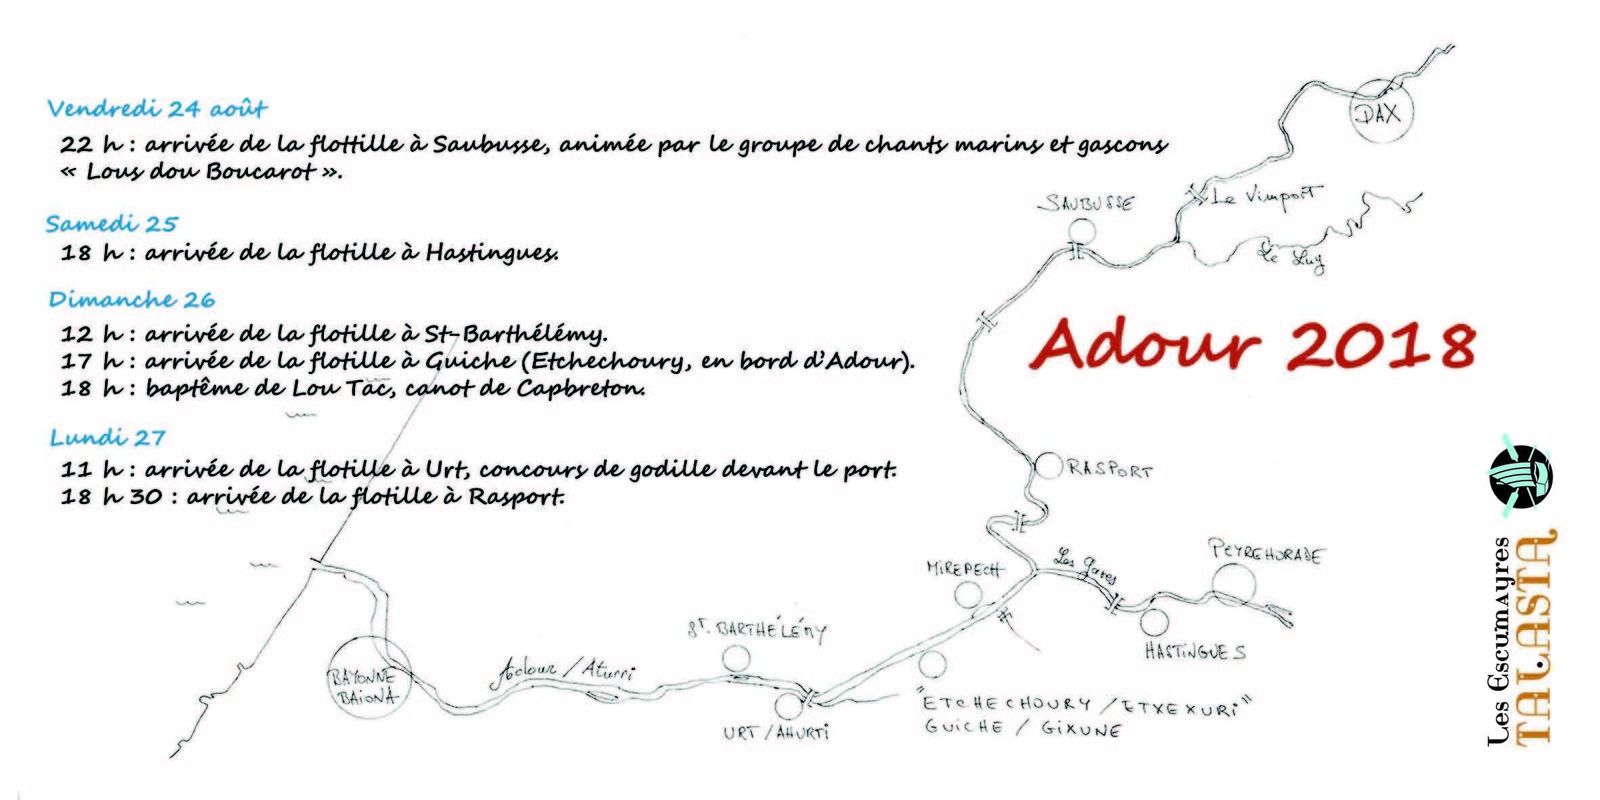 Vendredi 24 août
22 h : arrivée de la flottille à Saubusse, animée par le groupe de chants marins et gascons
« Lous dou Boucarot ».
Samedi 25
18 h : arrivée de la flotille à Hastingues.
Dimanche 26
12 h : arrivée de la flotille à St-Barthélémy.
17 h : arrivée de la flotille à Guiche (Etchechoury, en bord d'Adour).
18 h : baptême de Lou Tac, canot de Capbreton.
Lundi 27
11 h : arrivée de la flotille à Urt, concours de godille devant le port.
18 h 30 : arrivée de la flotille à Rasport.
DAX
Le Vimport
SAUBUSSE
Le Luy
Adour 2018
RASPORT
Les gaves
PEYREHORADE
MIREPECH
HASTINGUES
ST. BARTHÉLÉMY
Adour / Aturri
BAYONNE
BAIONA
URT / AHURTI
"ETCHECHOURY / ETXEXURI"
GUICHE / GIXUNE
Les EscumAyres
TALASTA